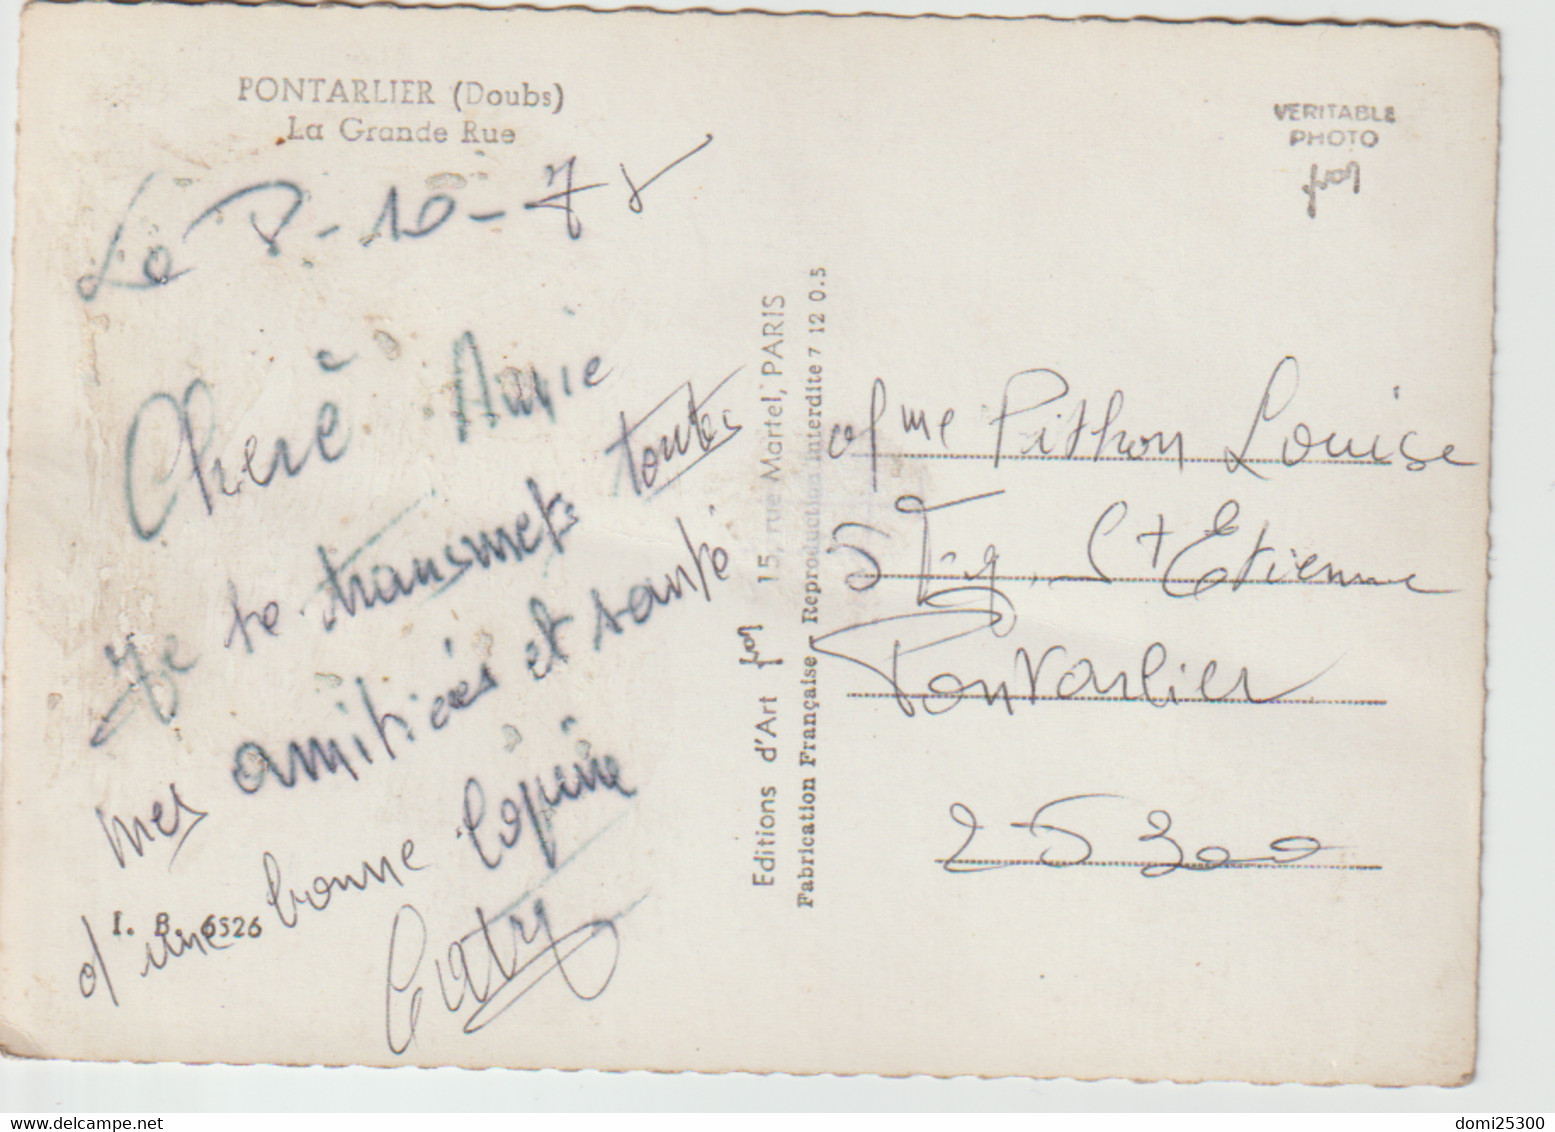 PONTARLIER (Doubs)
La Grande Rue
Le 8-10-75
Chère Amie
Je te transmets toutes
mes amitiées et santé
d'une bonne copine
Caty
I. B. 6526
Editions d'Art yvon 15, rue Martel, PARIS
Fabrication Française - Reproduction interdite 7 12 0.5
VERITABLE
PHOTO
yvon
Mme Pithon Louise
Fg. St Etienne
Pontarlier
25300
delcampe.net
domi25300